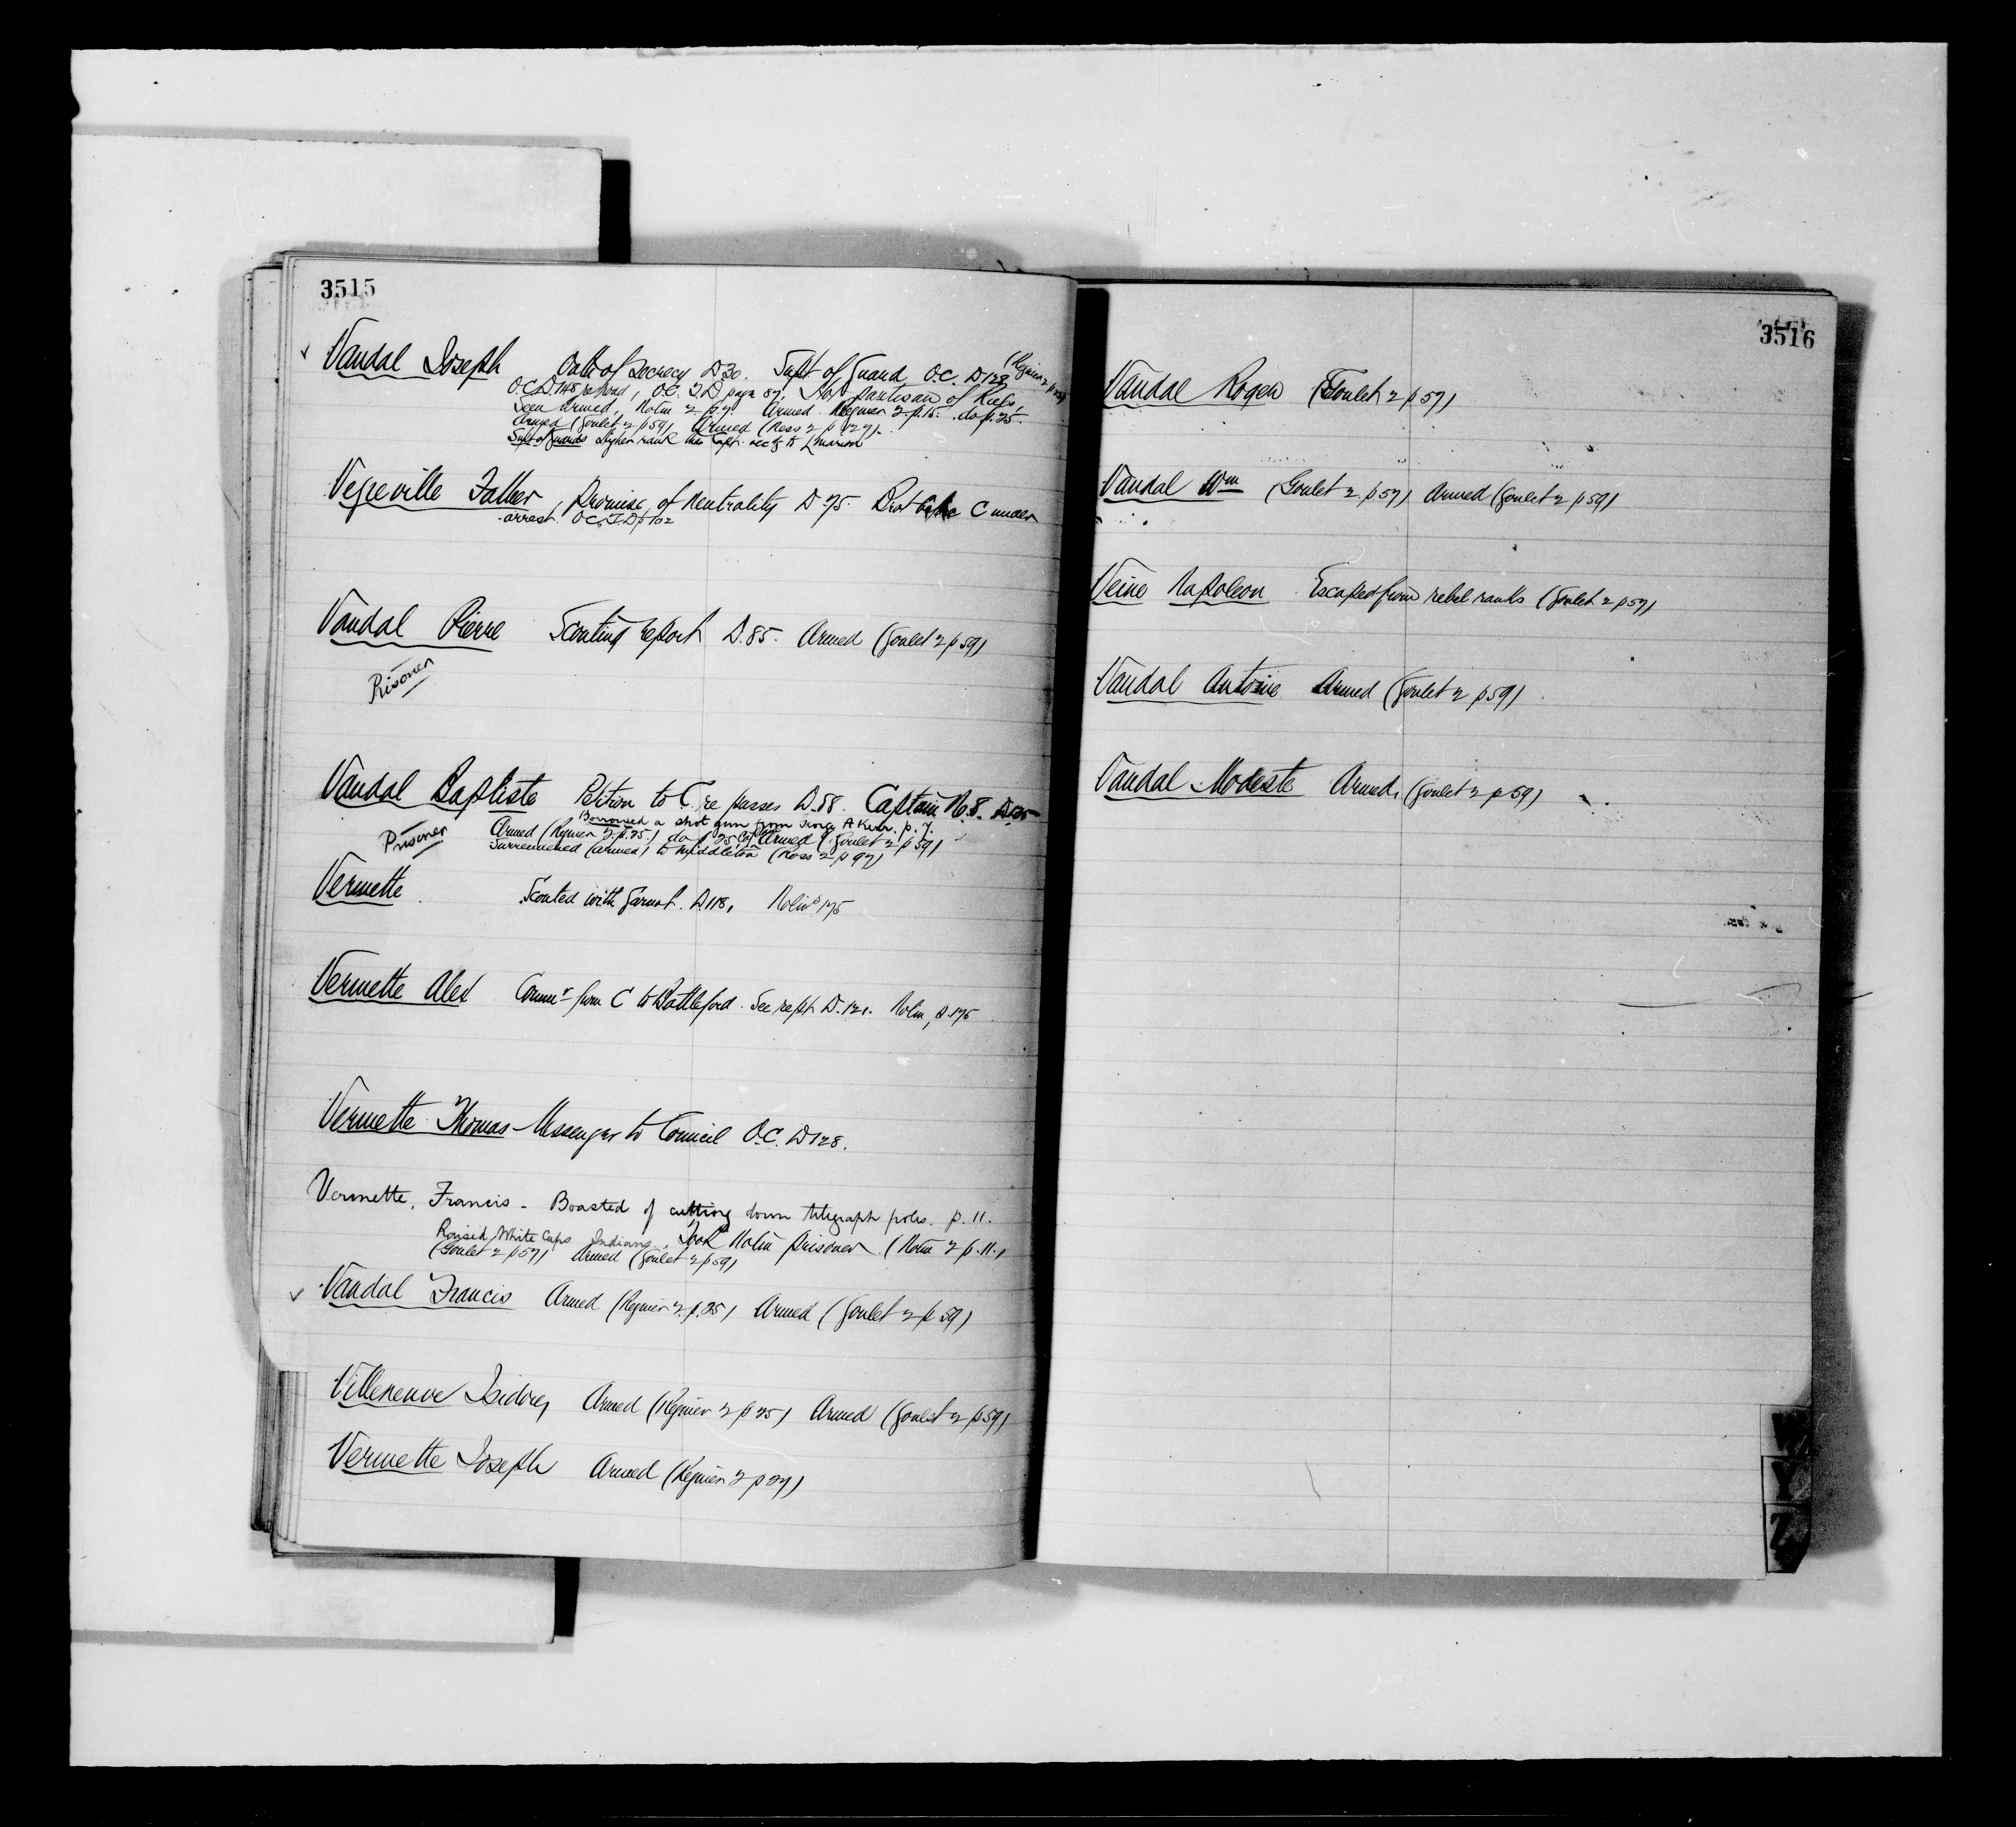 3515
Vandal Joseph Oath of Secrecy D 30. Supt of Guard O.C. D 128 (Regnier 2 p 29)
O.C. D.148, O.C. I.D page 87. Hot partisan of Riels,
Seen Armed, Nolin 2 p. 7. Armed. Regnier 2 p. 15. do p. 25.
Armed (Goulet 2 p 59) Armed (Ross 2 p 127).
Supt of guards higher rank than Capt. accdg to
Vegreville Father, Promise of Neutrality D 75. Brot before C under
arrest. O.C. I.D p 102
Vandal Pierre Scouting report D. 85. Armed (Goulet 2 p 59)
Prisoner
Vandal Baptiste Petition to C. re passes D. 88. Captain No. 8. D 135
Borrowed a shot gun from George A Kerr. p. 7.
Prisoner Armed (Regnier 2. p. 25.) do p 25 Capt Armed (Goulet 2 p 59)
Surrendered (armed) to Middleton (Ross 2 p 97)
Vermette Scouted with Garnot. D. 118, Nolin 175
Vermette Alex Commr from C to Battleford. See rept D. 121. Nolin, p. 175
Vermette Thomas - Messenger to Council O.C. D 128.
Vermette, Francis - Boasted of cutting down telegraph poles. p. 11.
Roused White Caps Indians, Took Nolin prisoner. (Nolin 2 p. 11.)
(Goulet 2 p 57) Armed (Goulet 2 p 59)
Vandal Francis Armed (Regnier 2. p. 25) Armed (Goulet 2 p 59)
Villeneuve Isidore, Armed (Regnier 2 p 25) Armed (Goulet 2 p 59)
Vermette Joseph Armed (Regnier 2 p 27)
3516
Vandal Roger (Goulet 2 p 57)
Vandal Wm (Goulet 2. p 57) Armed (Goulet 2 p 59)
Veine Napoleon Escaped from rebel ranks (Goulet 2 p 57)
Vandal Antoine Armed (Goulet 2 p 59)
Vandal Modeste Armed, (Goulet 2 p 59)
W
Y
Z